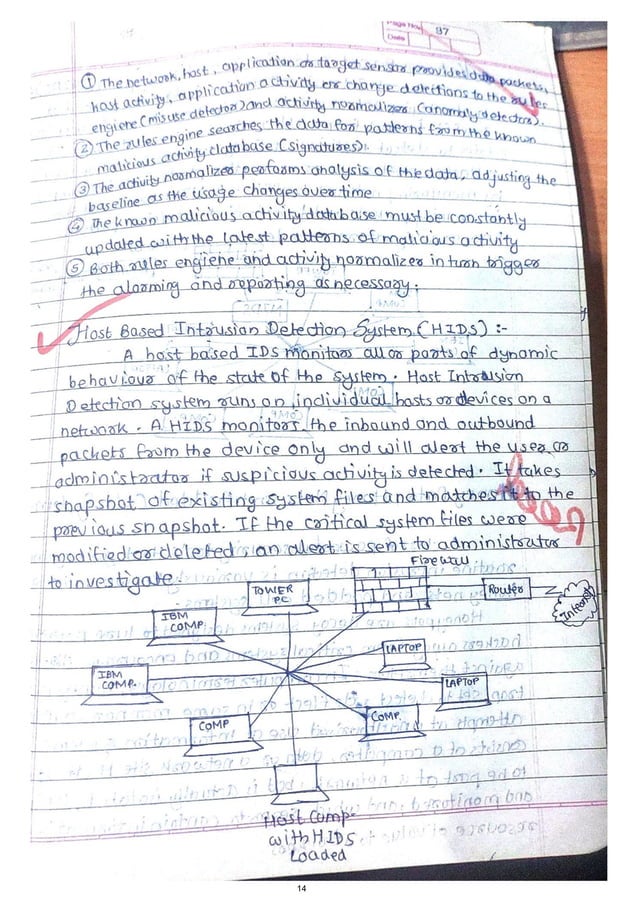 Page No.
Date
37
① The network, host, application or target sensor provides data packets,
host activity, application activity or change detections to the rules
engiene (misuse detector) and activity normalizer (anomaly detector).
② The rules engine searches the data for patterns from the known
malicious activity database (signatures).
③ The activity normalizer performs analysis of the data, adjusting the
baseline as the usage changes over time
④ The known malicious activity database must be constantly
updated with the latest patterns of malicious activity
⑤ Both rules engiene and activity normalizer in turn trigger
the alarming and reporting as necessary.
Host Based Intrusion Detection System (HIDS) :-
A host based IDS monitors all or parts of dynamic
behaviour of the state of the system. Host Intrusion
Detection system runs on individual hosts or devices on a
network. A HIDS monitors the inbound and outbound
packets from the device only and will alert the user or
administrator if suspicious activity is detected. It takes
snapshot of existing system files and matches it to the
previous snapshot. If the critical system files were
modified or deleted an alert is sent to administrator
to investigate
Firewall
TOWER
PC
Router
Internet
IBM
COMP.
LAPTOP
IBM
COMP.
LAPTOP
COMP
COMP.
Host Comp.
with HIDS
Loaded
14